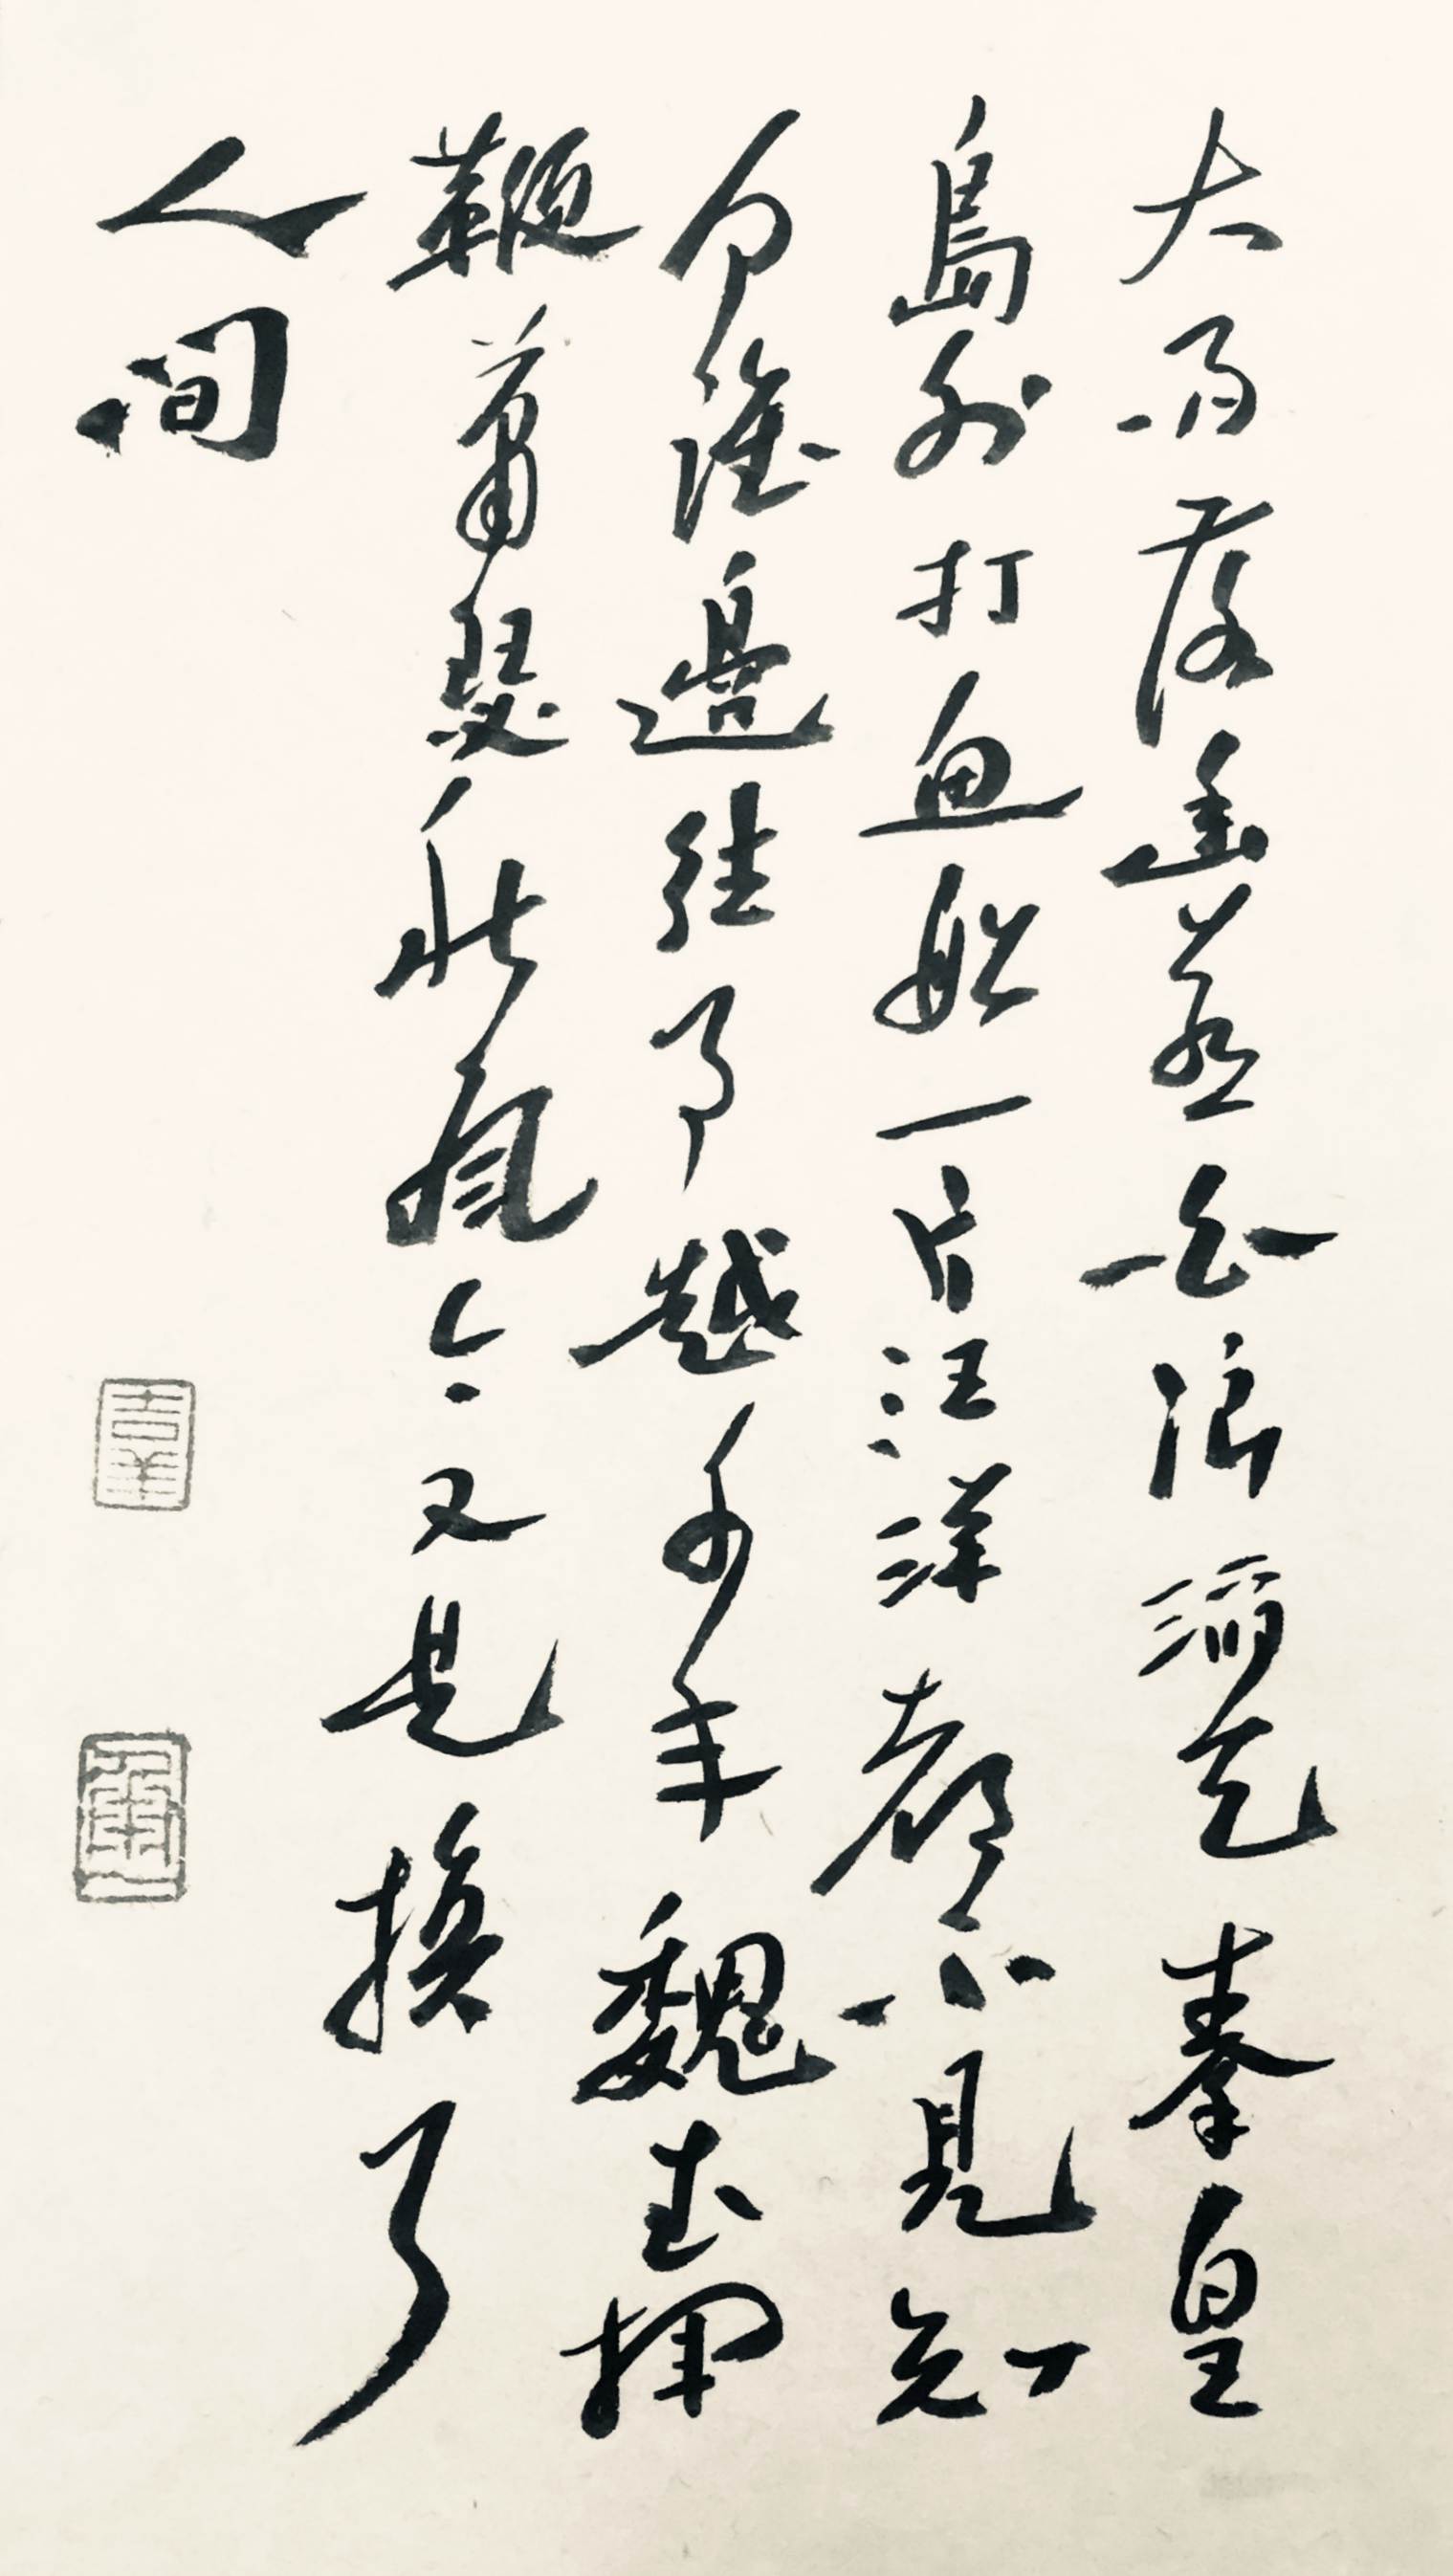 大雨落幽燕白浪滔天秦皇
島外打魚船一片汪洋都不見知
向誰邊往事越千年魏武揮
鞭蕭瑟秋風今又是換了
人間
吉羊